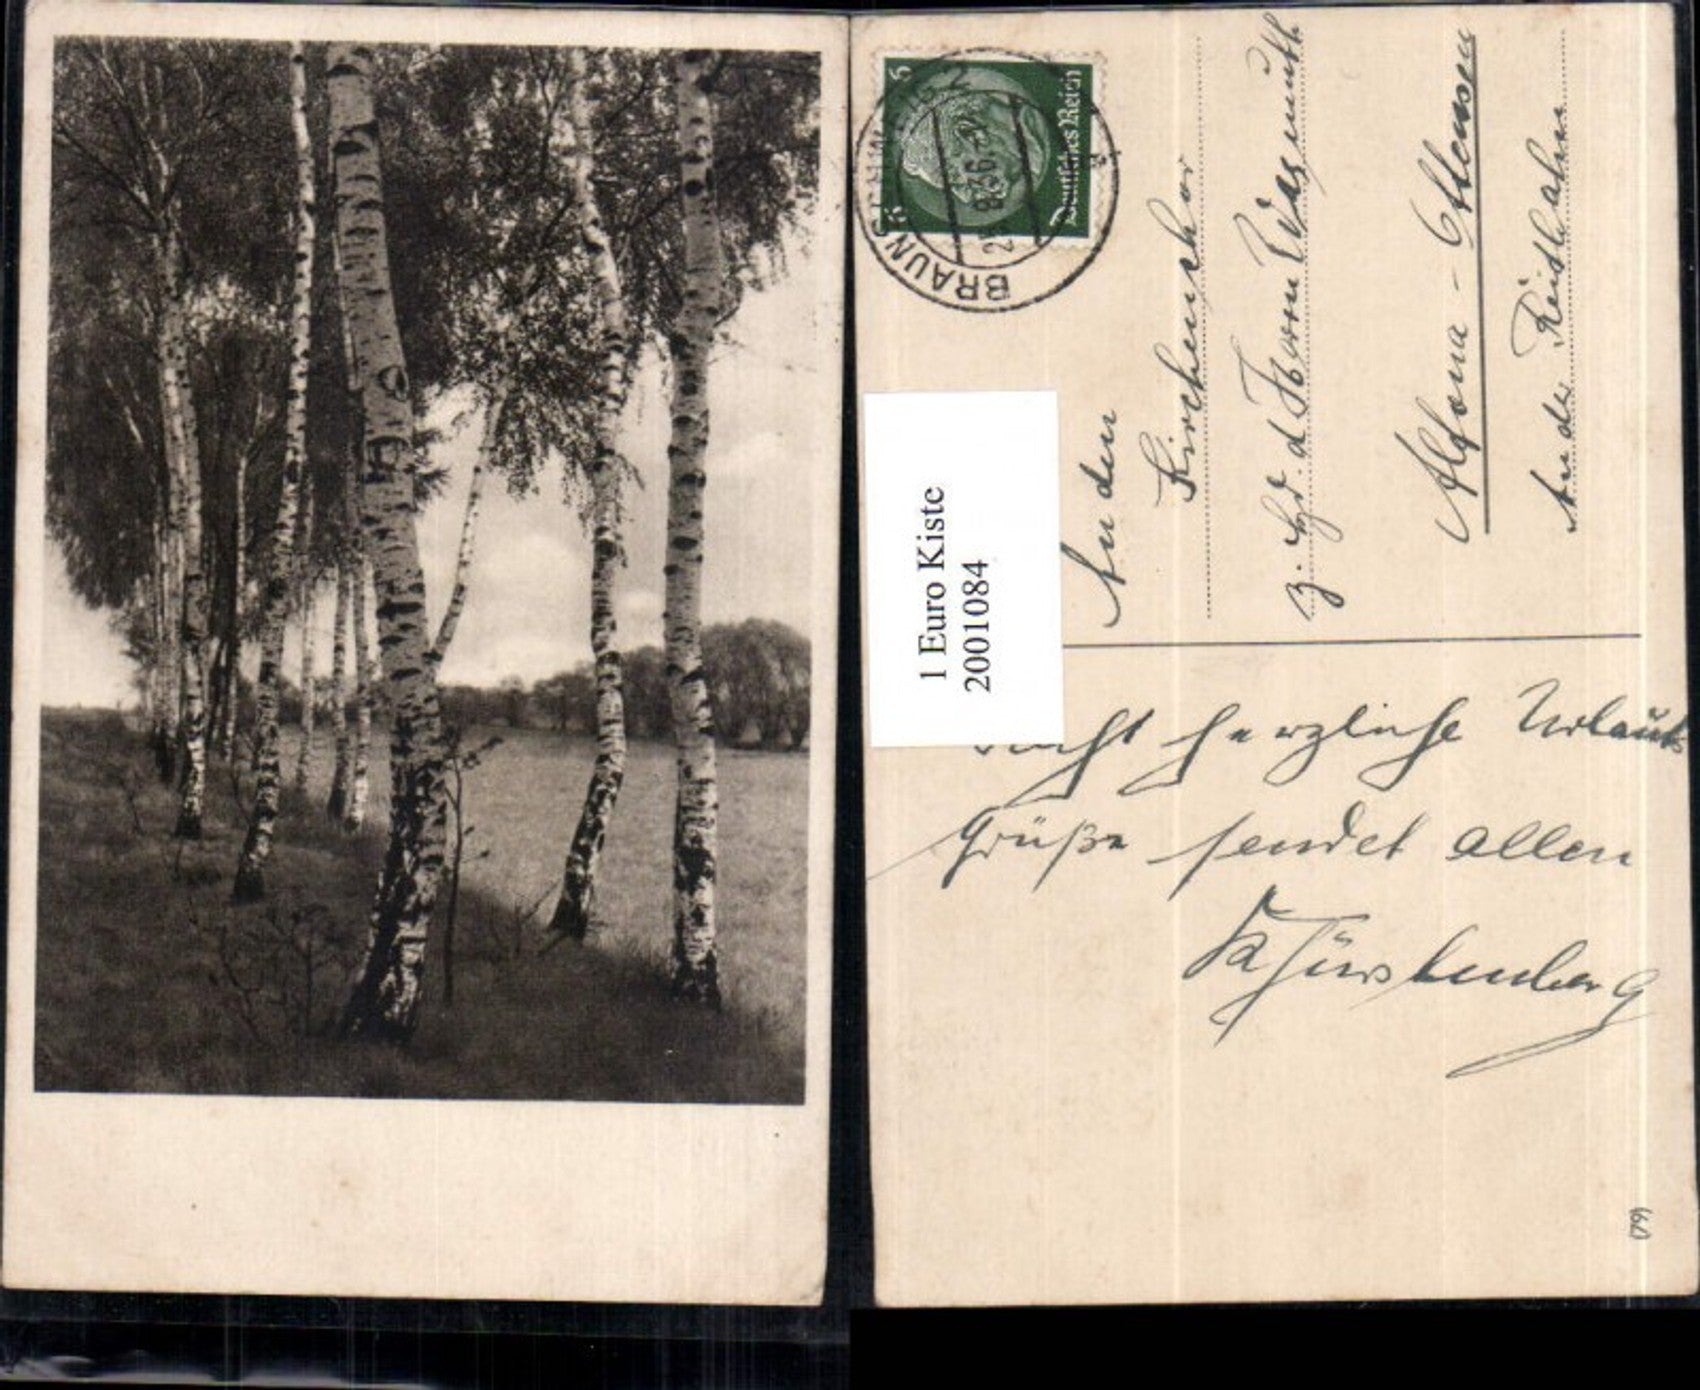 5
5
Deutsches Reich
BRAUNSCHWEIG
1 Euro Kiste
2001084
An den
Kirchenchor
z. Hd. d. Herrn
Altona - Ottensen
An der Reitbahn
Recht herzliche Urlaubs
Grüße sendet allen
(79)